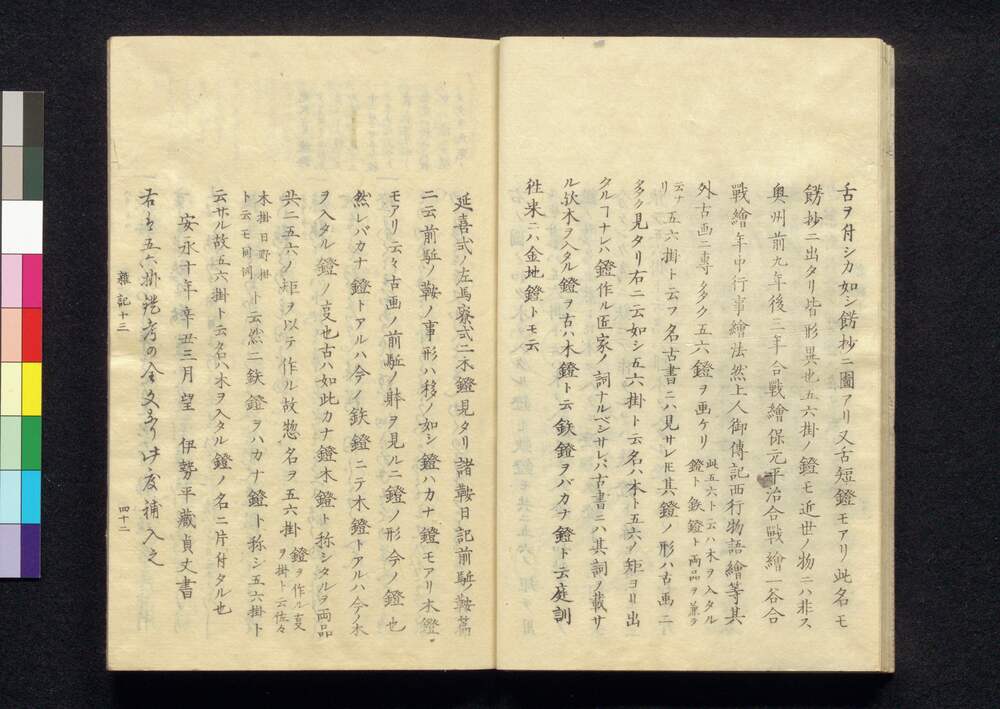 舌ヲ付シカ如シ餝抄ニ圖アリ又舌短鐙モアリ此名モ
餝抄ニ出タリ皆形異也五六掛ノ鐙モ近世ノ物ニハ非ス
奥州前九年後三年合戰繪保元平治合戰繪一谷合
戰繪年中行事繪法然上人御傳記西行物語繪等其
外古画ニ專ラ多ク五六鐙ヲ画ケリ
此五六ト云ハ木ヲ入タル
鐙ト鉄鐙ト両品ヲ兼ヲ
云ナリ
五六掛ト云フ名古書ニハ見サレ𪜈其鐙ノ形ハ古画ニ
多ク見タリ右ニ云如シ五六掛ト云名ハ木ト五六ノ矩ヨリ出
タルヿナレハ鐙作ル匠家ノ詞ナルベシサレバ古書ニハ其詞ノ載サ
ル欤木ヲ入タル鐙ヲ古ハ木鐙ト云鉄鐙ヲバカナ鐙ト云庭訓
往来ニハ金地鐙トモ云
延喜式ノ左馬寮式ニ木鐙見タリ諸鞍日記前駈鞍篇
ニ云前駈ノ鞍ノ事形ハ移ノ如シ鐙ハカナ鐙モアリ木鐙
モアリ云々古画ノ前駈ノ躰ヲ見ルニ鐙ノ形今ノ鐙也
然レバカナ鐙トアルハ今ノ鉄鐙ニテ木鐙トアルハ今ノ木
ヲ入タル鐙ノ叓也古ハ如此カナ鐙木鐙ト称シタルヲ両品
共ニ五六ノ矩ヲ以テ作ル故惣名ヲ五六掛
鐙ヲ作ル叓
ヲ掛ト云佐々
木掛日野掛
ト云モ同例
ト云然ニ鉄鐙ヲハカナ鐙ト称シ五六掛ト
云サル故五六掛ト云名ハ木ヲ入タル鐙ノ名ニ片付タル也
安永十年辛丑三月望 伊勢平藏貞丈書
右者五六掛鐙考の全文也此度補入之
雜記十三 四十二